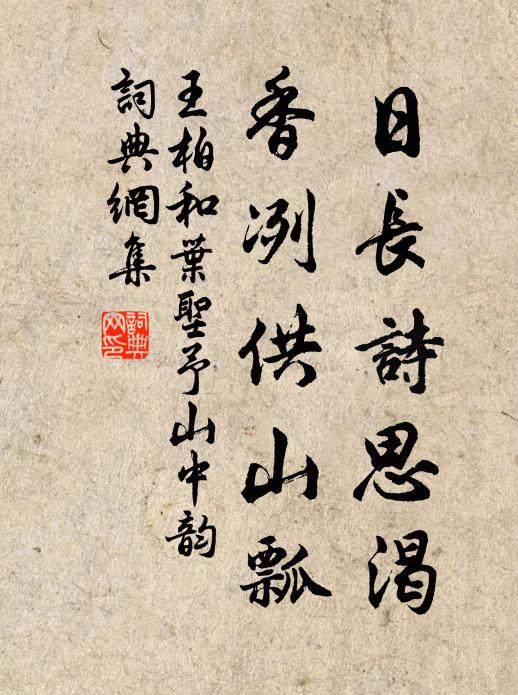 日長詩思渴
香冽供山瓢
王柏和葉聖予山中韵
詞典網集
詞典网印